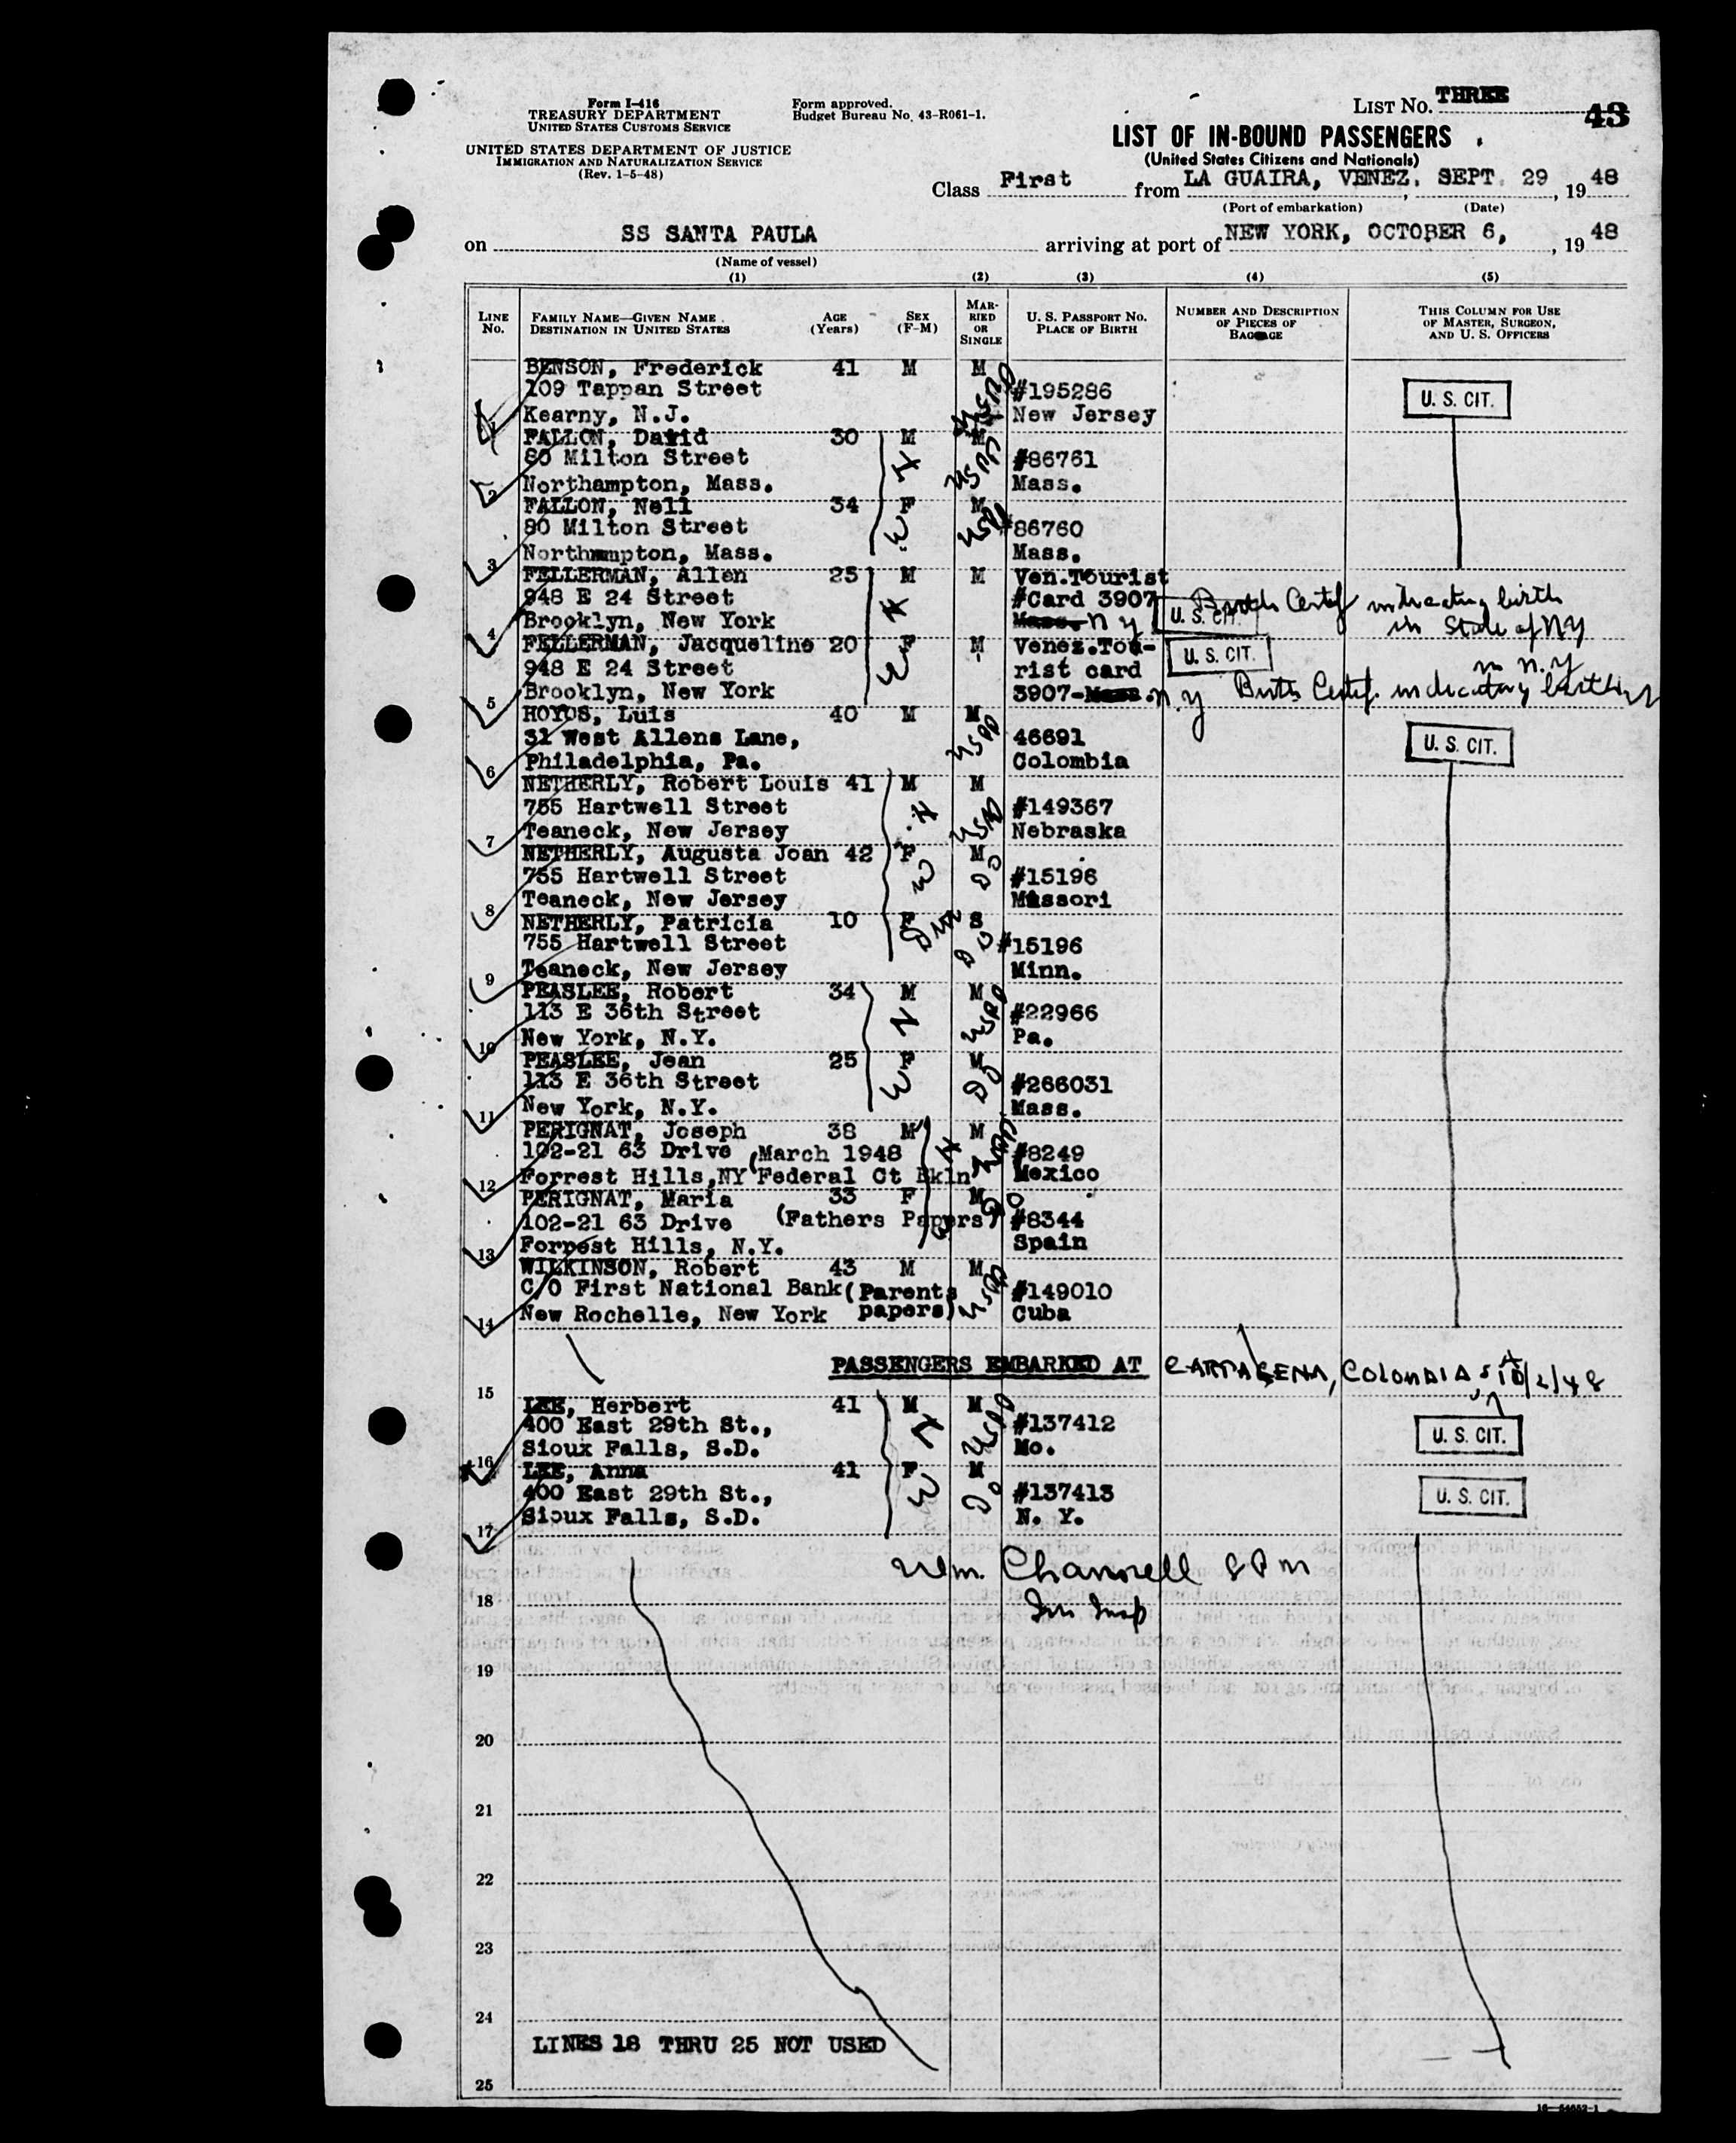 Form I-416
TREASURY DEPARTMENT
UNITED STATES CUSTOMS SERVICE
UNITED STATES DEPARTMENT OF JUSTICE
IMMIGRATION AND NATURALIZATION SERVICE
(Rev. 1-5-48)
Form approved.
Budget Bureau No. 43-R061-1.
LIST NO. THREE
43
LIST OF IN-BOUND PASSENGERS
(United States Citizens and Nationals)
Class First from LA GUAIRA, VENEZ. SEPT. 29, 1948
(Port of embarkation) (Date)
on SS SANTA PAULA arriving at port of NEW YORK, OCTOBER 6, , 1948
(Name of vessel)
(1) (2) (3) (4) (5)
LINE No. FAMILY NAME—GIVEN NAME DESTINATION IN UNITED STATES AGE (Years) SEX (F-M) MARRIED OR SINGLE U. S. PASSPORT NO. PLACE OF BIRTH NUMBER AND DESCRIPTION OF PIECES OF BAGGAGE THIS COLUMN FOR USE OF MASTER, SURGEON, AND U. S. OFFICERS
BENSON, Frederick 41 M M
109 Tappan Street #195286 U. S. CIT.
1 Kearny, N.J. USPP New Jersey
FALLON, David 30 M M
80 Milton Street H #86761
2 Northampton, Mass. USPP Mass.
FALLON, Nell 34 F M
80 Milton Street W USPP #86760
3 Northampton, Mass. Mass.
FELLERMAN, Allen 25 M M Ven.Tourist
948 E 24 Street H #Card 3907 U. S. CIT. Birth Certif indicating birth
4 Brooklyn, New York Mass. N Y in State of NY
FELLERMAN, Jacqueline 20 F M Venez.Tou-
948 E 24 Street W rist card U. S. CIT. in N.Y
5 Brooklyn, New York 3907-Mass. N.Y Birth Certif. indicating birth
HOYOS, Luis 40 M M
31 West Allens Lane, USPP 46691 U. S. CIT.
6 Philadelphia, Pa. Colombia
NETHERLY, Robert Louis 41 M M
755 Hartwell Street H USPP #149367
7 Teaneck, New Jersey Nebraska
NETHERLY, Augusta Joan 42 F M
755 Hartwell Street W DO #15196
8 Teaneck, New Jersey Missori
NETHERLY, Patricia 10 F S
755 Hartwell Street DO #15196
9 Teaneck, New Jersey Minn.
PEASLEE, Robert 34 M M
113 E 36th Street H USPP #22966
10 New York, N.Y. Pa.
PEASLEE, Jean 25 F M
113 E 36th Street W DO #266031
11 New York, N.Y. Mass.
PERIGNAT, Joseph 38 M M
102-21 63 Drive (March 1948 H #8249
12 Forrest Hills,NY Federal Ct Bkln Mexico
PERIGNAT, Maria 33 F M DO
102-21 63 Drive (Fathers Papers) #8344
13 Forrest Hills, N.Y. Spain
WILKINSON, Robert 43 M M
C/O First National Bank (Parents USPP #149010
14 New Rochelle, New York papers) Cuba
PASSENGERS EMBARKED AT CARTAGENA, COLOMBIA, S.A. 10/2/48
15
LEE, Herbert 41 M M
400 East 29th St., H USPP #137412 U. S. CIT.
16 Sioux Falls, S.D. Mo.
LEE, Anna 41 F M
400 East 29th St., W DO #137413 U. S. CIT.
17 Sioux Falls, S.D. N. Y.
Wm. Channell
Imm Insp
18
19
20
21
22
23
24
LINES 18 THRU 25 NOT USED
25